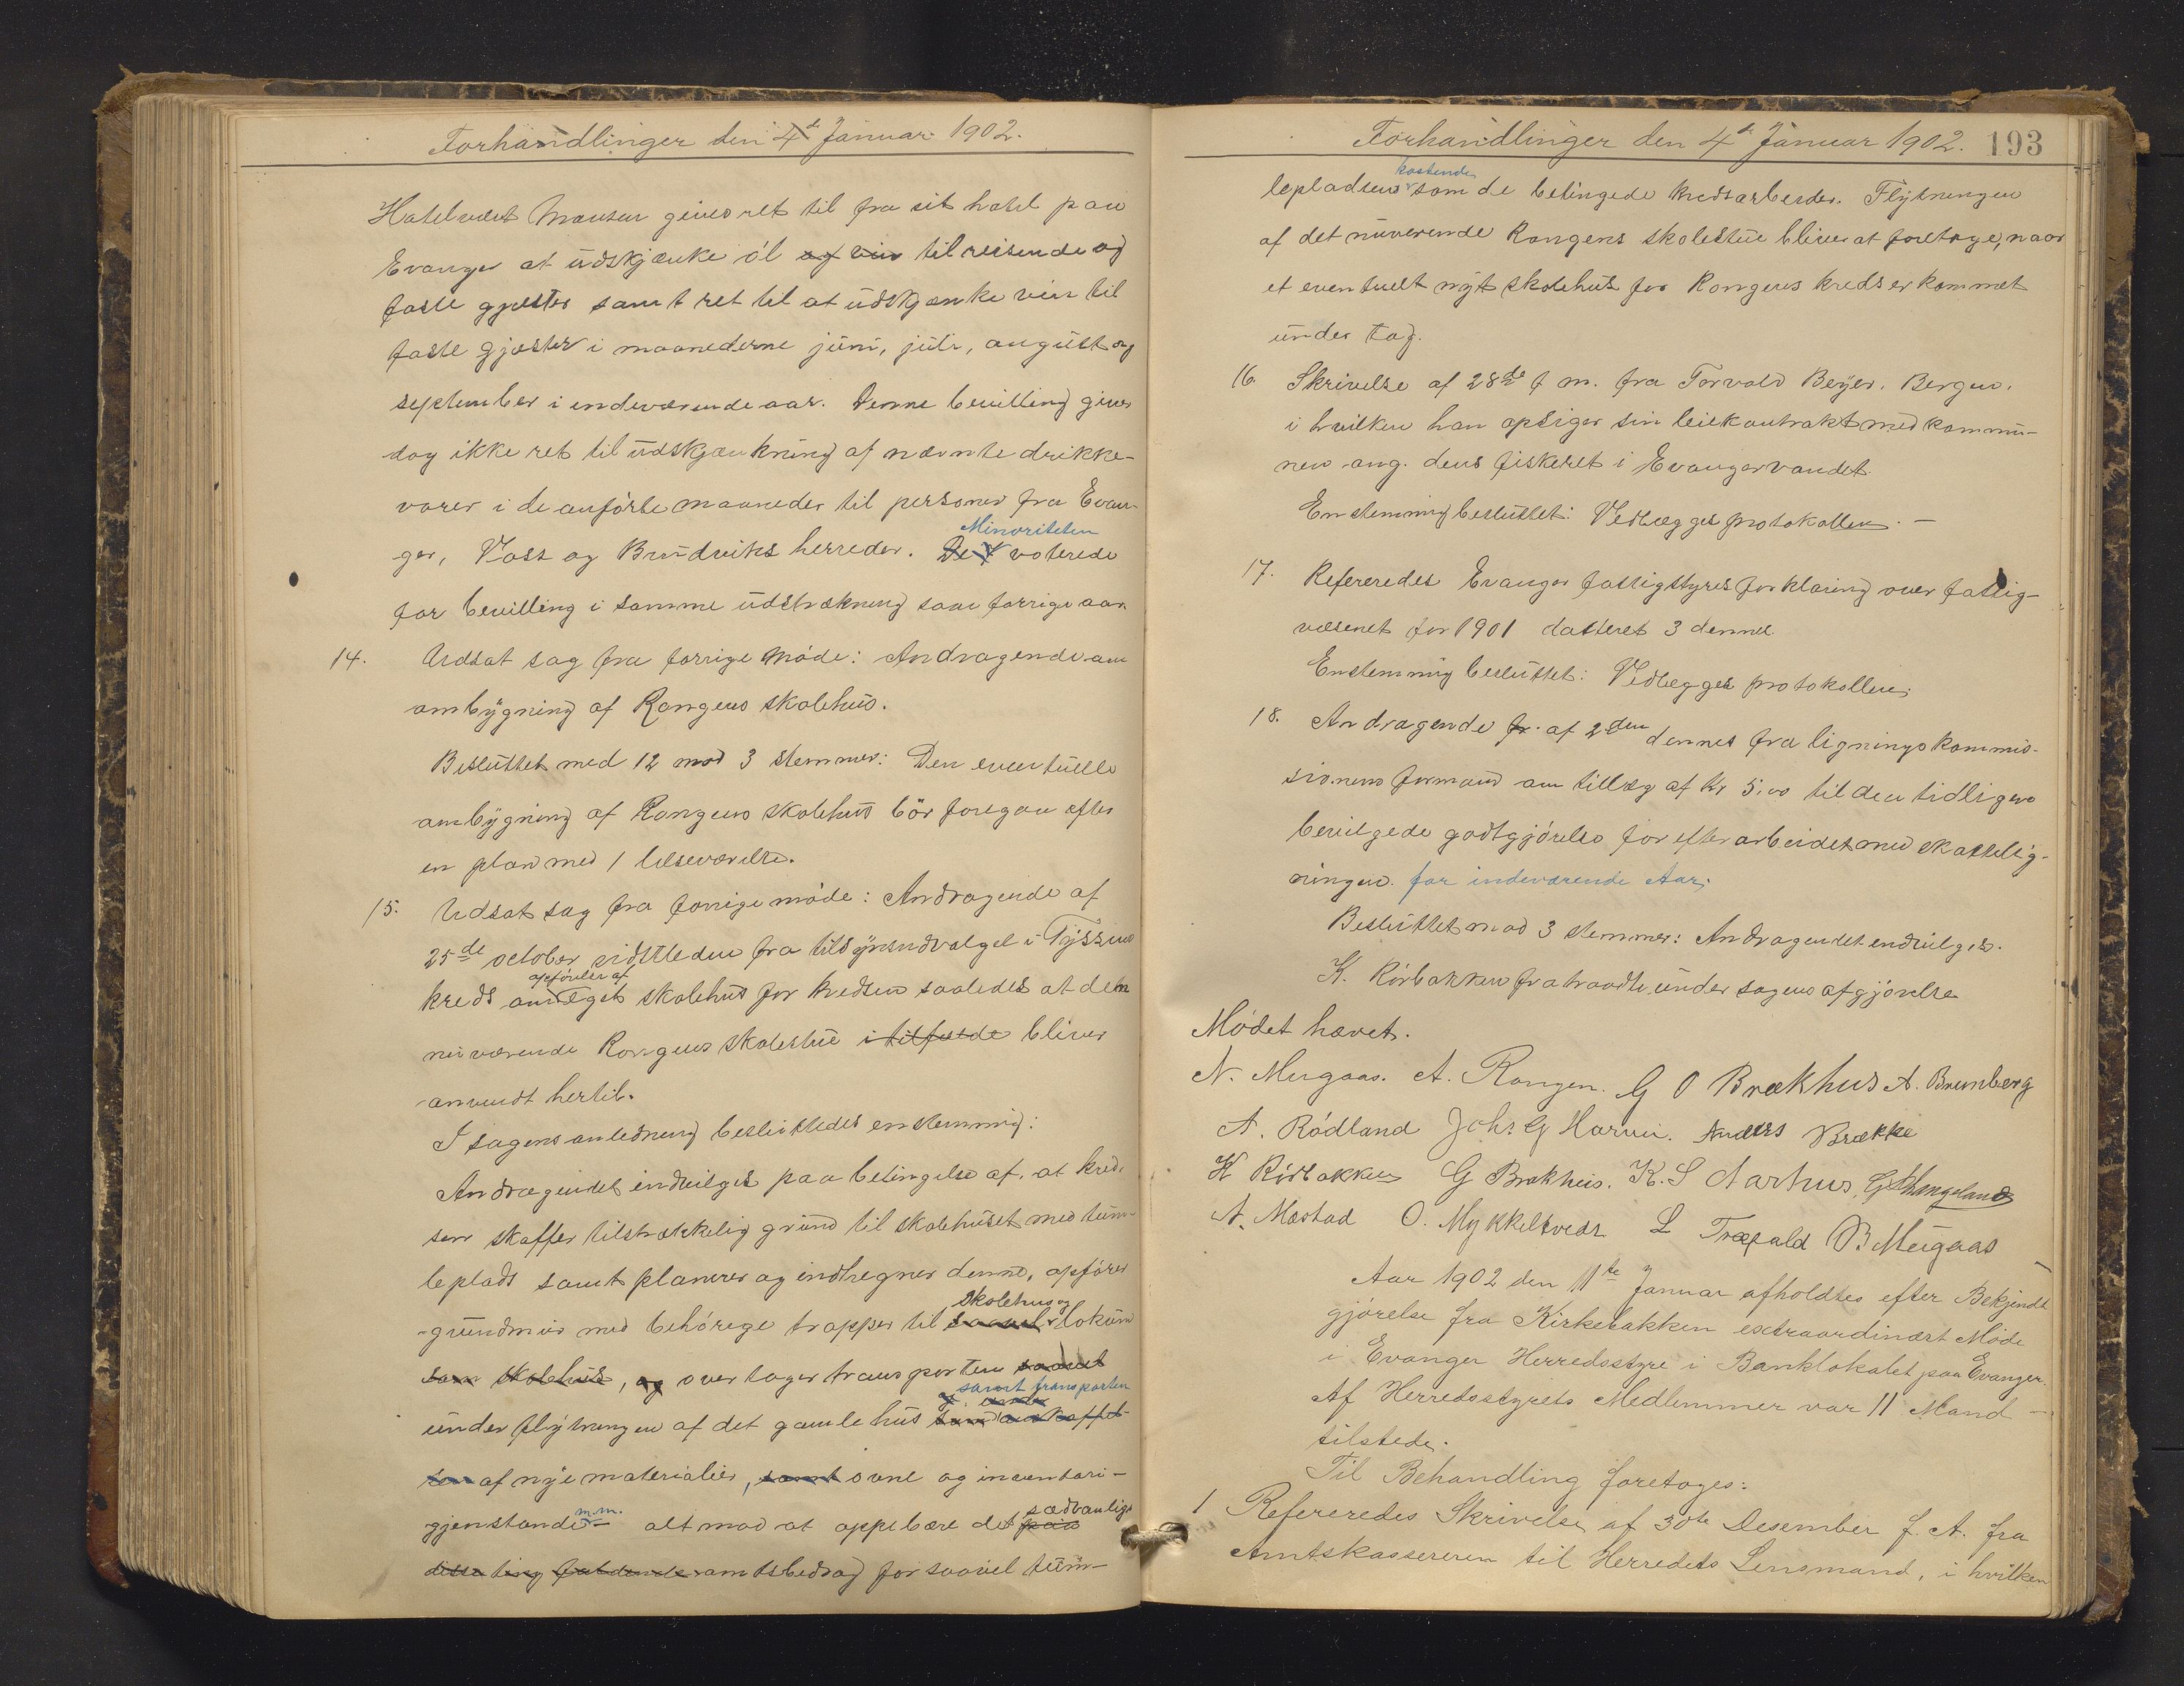 Forhandlinger den 4de Januar 1902.
Hotelvært Monsen gives ret til fra sit hotel paa
Evanger at udskjænke öl og vin til reisende og
faste gjæster samt ret til at udskjænke vin til
faste gjæster i maanederne juni, juli, august og
september i indeværende aar. Denne bevilling giver
dog ikke ret til udskjænkning af nævnte drikke-
varer i de anförte maaneder til personer fra Evan-
Minoriteten
ger, Voss og Bruviks herreder. voterede
for bevilling i samme udstrækning som forrige aar.
14. Udsat sag fra forrige möde: Andragende om
ombygning af Rongens skolehus.
Besluttet med 12 mod 3 stemmer: Den eventuelle
ombygning af Rongens skolehus bör foregaa efter
en plan med 1 læseværelse.
15. Udsat sag fra forrige möde: Andragende af
25de october sidstleden fra tilsynsudvalget i Tyssens
opförelse af
kreds om eget skolehus for kredsen saaledes at den
nuværende Rongens skolestue i tilfælde bliver
anvendt hertil.
I sagens anledning besluttedes enstemmig:
Andragendet indvilges paa betingelse af, at kred-
sen skaffer tilstrækkelig grund til skolehuset med tum-
leplads samt planerer og indhegner denne, opförer
skolehus og
grundmur med behörige trapper til saavel lokum
som skolehus, og overtager transporten
samt transporten
under flytningen af det gamle hus
af nye materialier, samt ovne og inventari-
m.m. sædvanlige
gjenstande alt mod at oppebære det
disse ting faldende amtsbidrag for saavel tum-
Forhandlinger den 4de Januar 1902. 193
kostende
lepladsen som de betingede kredsarbeider. Flytningen
af det nuværende Rongens skolestue bliver at foretage, naar
et eventuelt nyt skolehus for Rongens kreds er kommet
under tag.
16. Skrivelse af 28de f m. fra Torvald Beyer, Bergen,
i hvilken han opsiger sin leiekontrakt med kommu-
nen ang. dens fiskeret i Evangervandet.
Enstemmig besluttet: Vedlægges protokollen. —
17. Refereredes Evanger fattigstyres forklaring over fattig-
væsenet for 1901 datteret 3 dennes
Enstemmig besluttet: Vedlægges protokollen.
18. Andragende fr. af 2den dennes fra ligningskommis-
sionens formand om tillæg af Kr 5,00 til den tidligere
bevilgede godtgjörelse for efterarbeidet med skattelig-
ningen. for indeværende Aar.
Besluttet mod 3 stemmer: Andragendet indvilges.
K. Rörbakken fratraadte under sagens afgjörelse
Mödet hævet.
N. Mugaas. A. Rongen. G O Brækhus A. Brunborg
A. Rödland Johs. G Horvei. Anders Brække
K Rörbakken G Brækhus. K. S Aarhus,
A. Mæstad O. Mykkeltvedt L Træfald B Mugaas
Aar 1902 den 11te Januar afholdtes efter Bekjendt
gjörelse fra Kirkebakken extraordinært Möde
i Evanger Herredsstyre i Banklokalet paa Evanger.
Af Herredsstyrets Medlemmer var 11 Mand —
tilstede.
Til Behandling foretoges:
1 Refereredes Skrivelse af 30te Desember f. A. fra
Amtskassereren til Herredets Lensmand, i hvilken